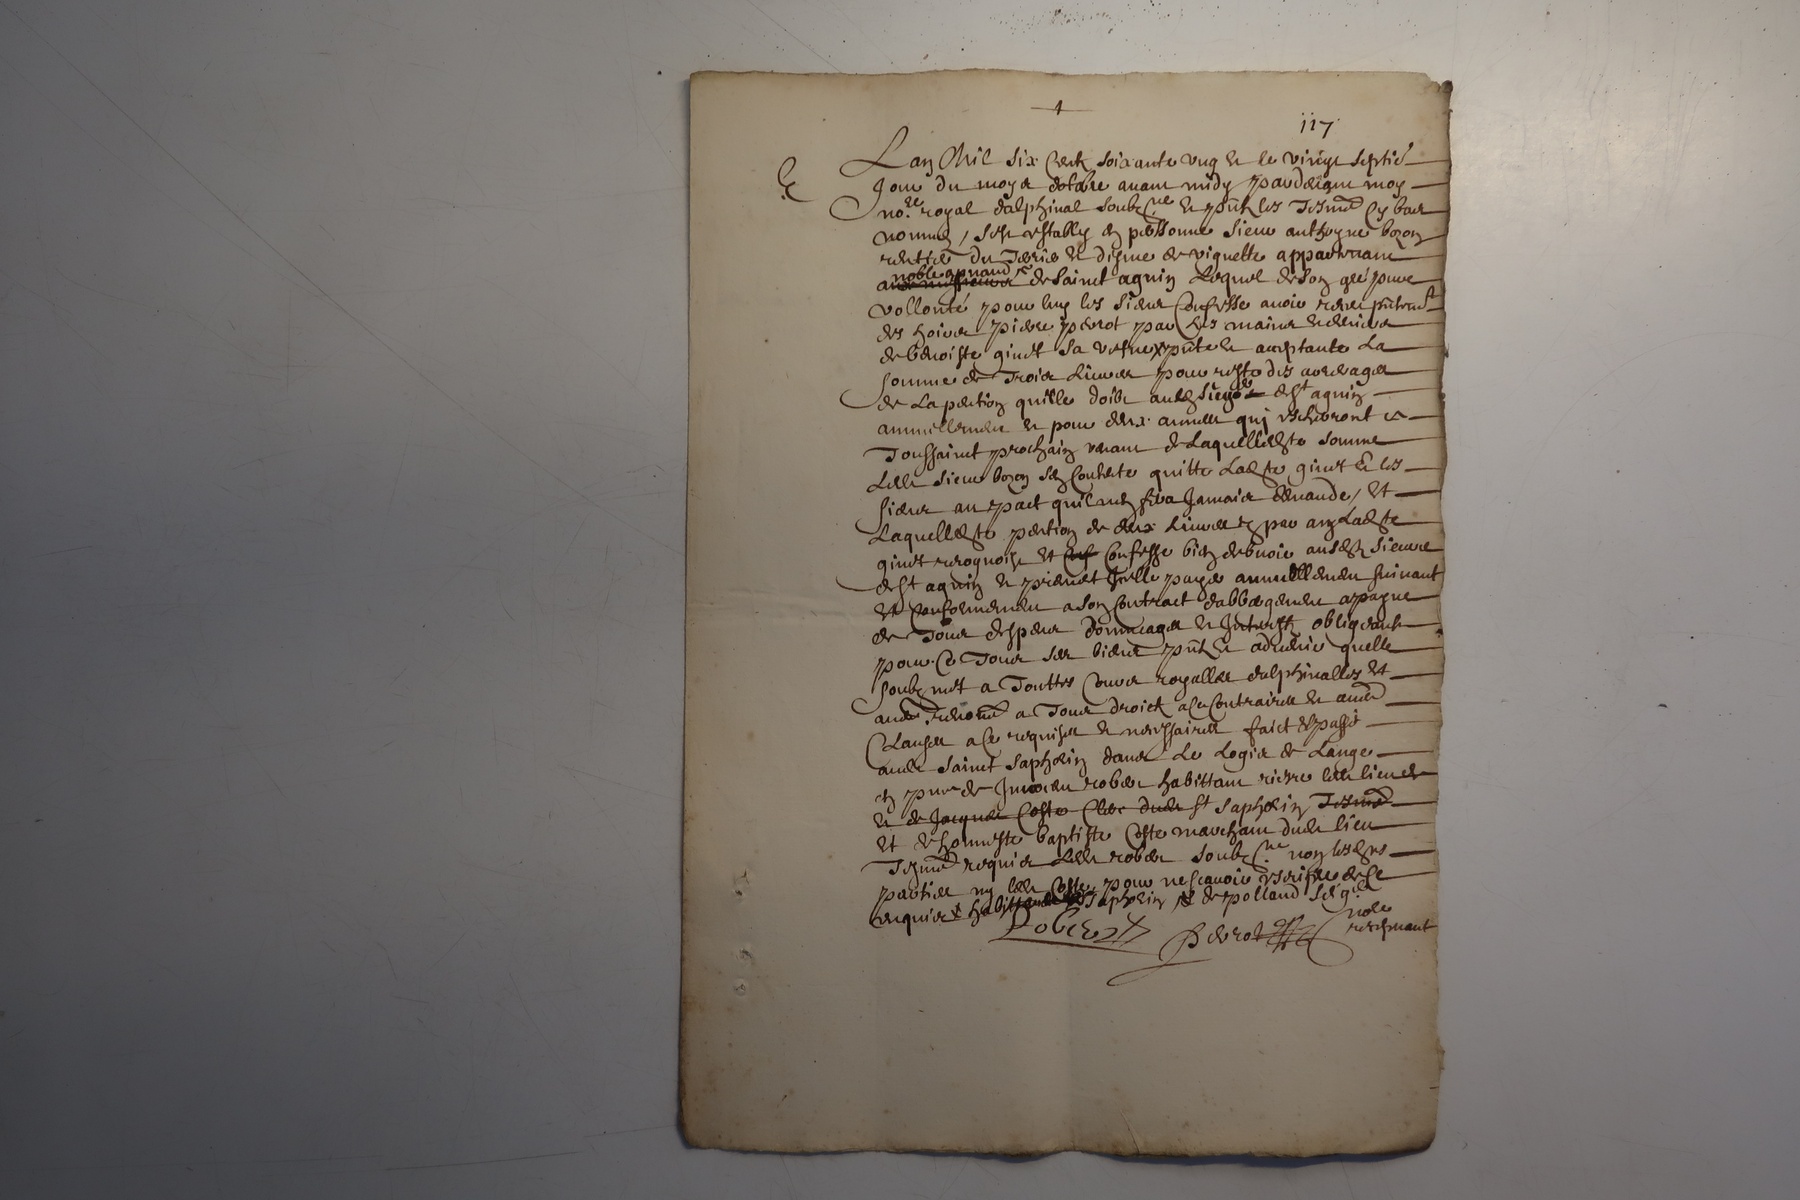 117
Lan Mil six cents soixante ung et le vingt septie
Jour du moys doctobre avant midy pardevant moy
no.re royal dalphinal soubz.ne et pnts les tesm cy bas
nommes, sest estably en personne sieur anthoyne bozon
rentier du terrier et disme de viguette appartenant
noble
de sainct agnin lequel de son gré pure
vollonté pour luy les sieurs confesse avoir receu pntement
des hoirs pierre perrot par les mains et deniers
de benoiste ginet sa vefve pnte et acceptante la
somme de trois livres pour reste des arrerages
de la pention quille doibt audt sieur de st agnin
annuellement et pour deux annees qui escheront a
Toussainct prochain venant de laquelle dte somme
ledt sieur bozon sen contente quitte ladte ginet et les
siens au pact quil nen fera jamais demande, et
laquelle dte pention de deux livres par an ladte
ginet recognoist et confesse bien debvoir audt sieur
de st agnin et promet jcelle payer annuellement suivant
et conformement a son contract dabbergement a payne
de tous despens dommages et interests obligeant
pour ce tous ses biens pnts et advenir quelle
soubzmet a touttes cours royalles dalphinalles et
aues renonce a tous droicts a ce contraires et aues
Clauses a ce requises et necessaires faict et passé
audt sainct saphorin dans le logis de Lange
en pnce de robert habittant riere ledt lieu
et de Jacques Coste Clerc dudt st saphorin tesmo
et dhonneste baptiste Coste marchant dudt lieu
Tesmo requis ledt robert soubz.ne non lesdes
parties ny ledt Coste pour ne scavoir escripre de ce
requis saphorin de polland
Robert Perrot no.re
recepvant